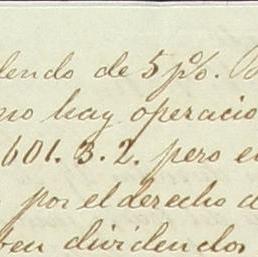 dendo de 5 p%.
no hay operacio
601. 3. 2. pero e
por el derecho d
ben dividendos